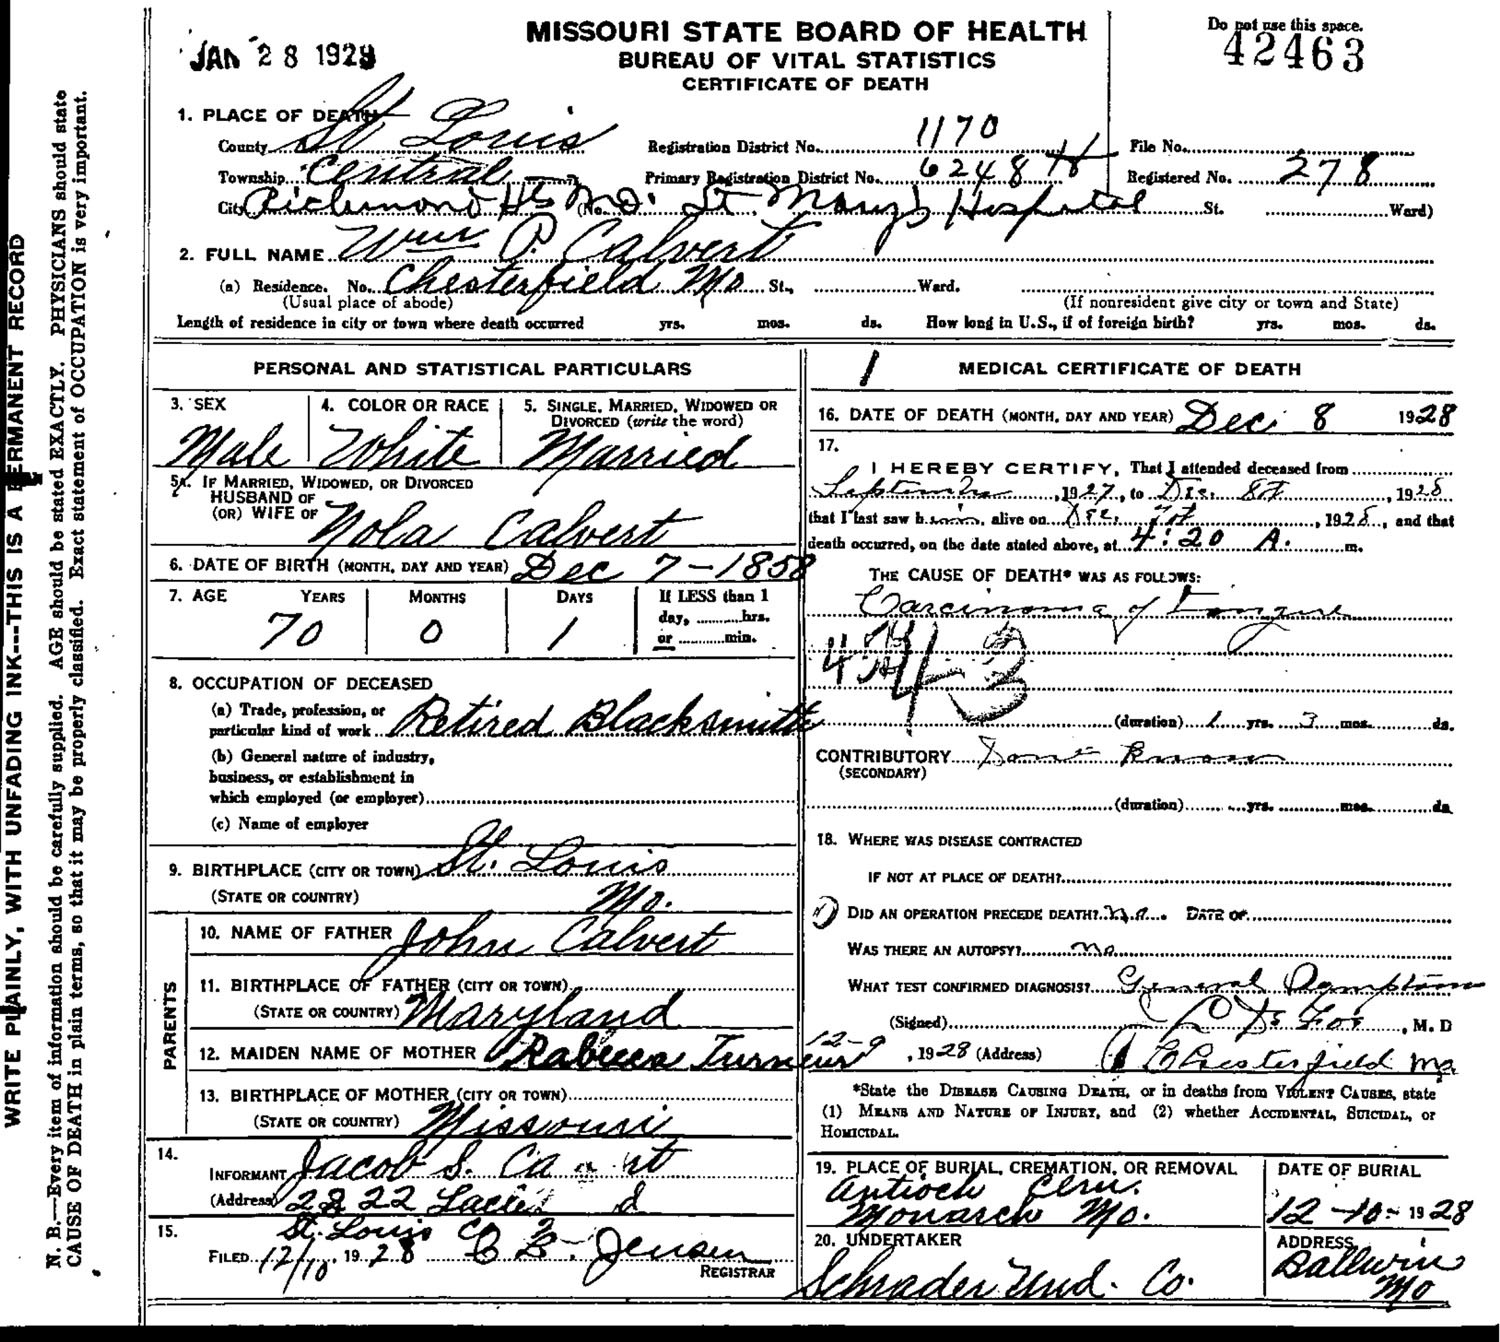 JAN 28 1929
MISSOURI STATE BOARD OF HEALTH
BUREAU OF VITAL STATISTICS
CERTIFICATE OF DEATH
Do not use this space.
42463
1. PLACE OF DEATH
County St Louis Registration District No. 1170 File No.
Township Central Primary Registration District No. 6248 H Registered No. 278
City Richmond Hts Mo. (No. St. Mary's Hospital St. Ward)
2. FULL NAME Wm P. Calvert
(a) Residence. No. Chesterfield Mo St., Ward.
(Usual place of abode) (If nonresident give city or town and State)
Length of residence in city or town where death occurred yrs. mos. ds. How long in U.S., if of foreign birth? yrs. mos. ds.
PERSONAL AND STATISTICAL PARTICULARS
3. SEX 4. COLOR OR RACE 5. SINGLE, MARRIED, WIDOWED OR
DIVORCED (write the word)
Male White Married
5A. IF MARRIED, WIDOWED, OR DIVORCED
HUSBAND OF
(OR) WIFE OF Nola Calvert
6. DATE OF BIRTH (MONTH, DAY AND YEAR) Dec 7-1858
7. AGE YEARS MONTHS DAYS If LESS than 1
day, hrs.
70 0 1 or min.
8. OCCUPATION OF DECEASED
(a) Trade, profession, or
particular kind of work Retired Blacksmith
(b) General nature of industry,
business, or establishment in
which employed (or employer)
(c) Name of employer
9. BIRTHPLACE (CITY OR TOWN) St. Louis
(STATE OR COUNTRY) Mo.
PARENTS
10. NAME OF FATHER John Calvert
11. BIRTHPLACE OF FATHER (CITY OR TOWN)
(STATE OR COUNTRY) Maryland
12. MAIDEN NAME OF MOTHER Rabecca
13. BIRTHPLACE OF MOTHER (CITY OR TOWN)
(STATE OR COUNTRY) Missouri
14.
INFORMANT Jacob S.
(Address) 2822
St. Louis Co
15.
FILED 12/10, 1928 Jensen
REGISTRAR
1 MEDICAL CERTIFICATE OF DEATH
16. DATE OF DEATH (MONTH, DAY AND YEAR) Dec. 8 1928
17.
I HEREBY CERTIFY, That I attended deceased from
September, 1927, to Dec. 8th, 1928
that I last saw him alive on Dec. 7th, 1928, and that
death occurred, on the date stated above, at 4:20 A. m.
THE CAUSE OF DEATH* WAS AS FOLLOWS:
Carcinoma of Tongue
(duration) 1 yrs. 3 mos. ds.
CONTRIBUTORY Dont Know
(SECONDARY)
(duration) yrs. mos. ds.
18. WHERE WAS DISEASE CONTRACTED
IF NOT AT PLACE OF DEATH?
DID AN OPERATION PRECEDE DEATH? no. DATE OF
WAS THERE AN AUTOPSY? no
WHAT TEST CONFIRMED DIAGNOSIS? General Symptoms
(Signed) , M. D
12-9, 1928 (Address) Chesterfield Mo.
*State the DISEASE CAUSING DEATH, or in deaths from VIOLENT CAUSES, state
(1) MEANS AND NATURE OF INJURY, and (2) whether ACCIDENTAL, SUICIDAL, or
HOMICIDAL.
19. PLACE OF BURIAL, CREMATION, OR REMOVAL DATE OF BURIAL
Antioch Cem.
Monarch Mo. 12-10-1928
20. UNDERTAKER ADDRESS
Schrader Und. Co. Ballwin
Mo
WRITE PLAINLY, WITH UNFADING INK---THIS IS A PERMANENT RECORD
N. B.—Every item of information should be carefully supplied. AGE should be stated EXACTLY. PHYSICIANS should state
CAUSE OF DEATH in plain terms, so that it may be properly classified. Exact statement of OCCUPATION is very important.